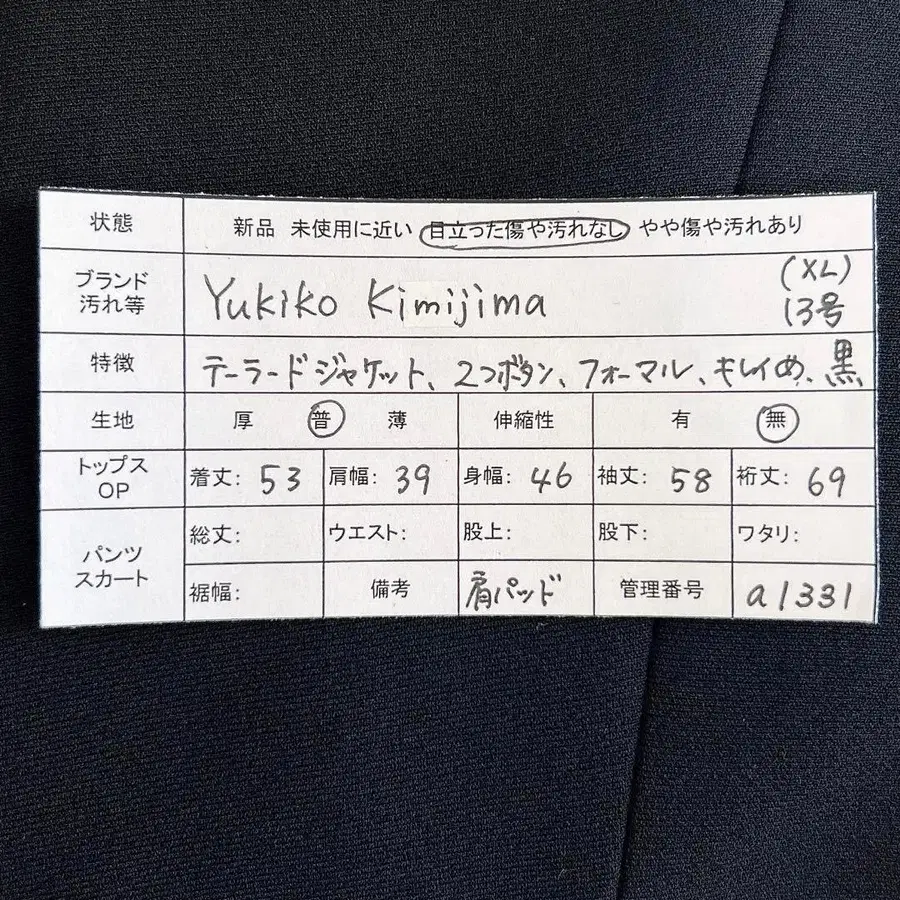 状態 新品 未使用に近い 目立った傷や汚れなし やや傷や汚れあり
ブランド
汚れ等
Yukiko Kimijima
(XL)
13号
特徴 テーラードジャケット、2つボタン、フォーマル、キレイめ、黒
生地 厚 普 薄 伸縮性 有 無
トップス
OP
着丈: 53 肩幅: 39 身幅: 46 袖丈: 58 裄丈: 69
パンツ
スカート
総丈: ウエスト: 股上: 股下: ワタリ:
裾幅: 備考 肩パッド 管理番号 a1331